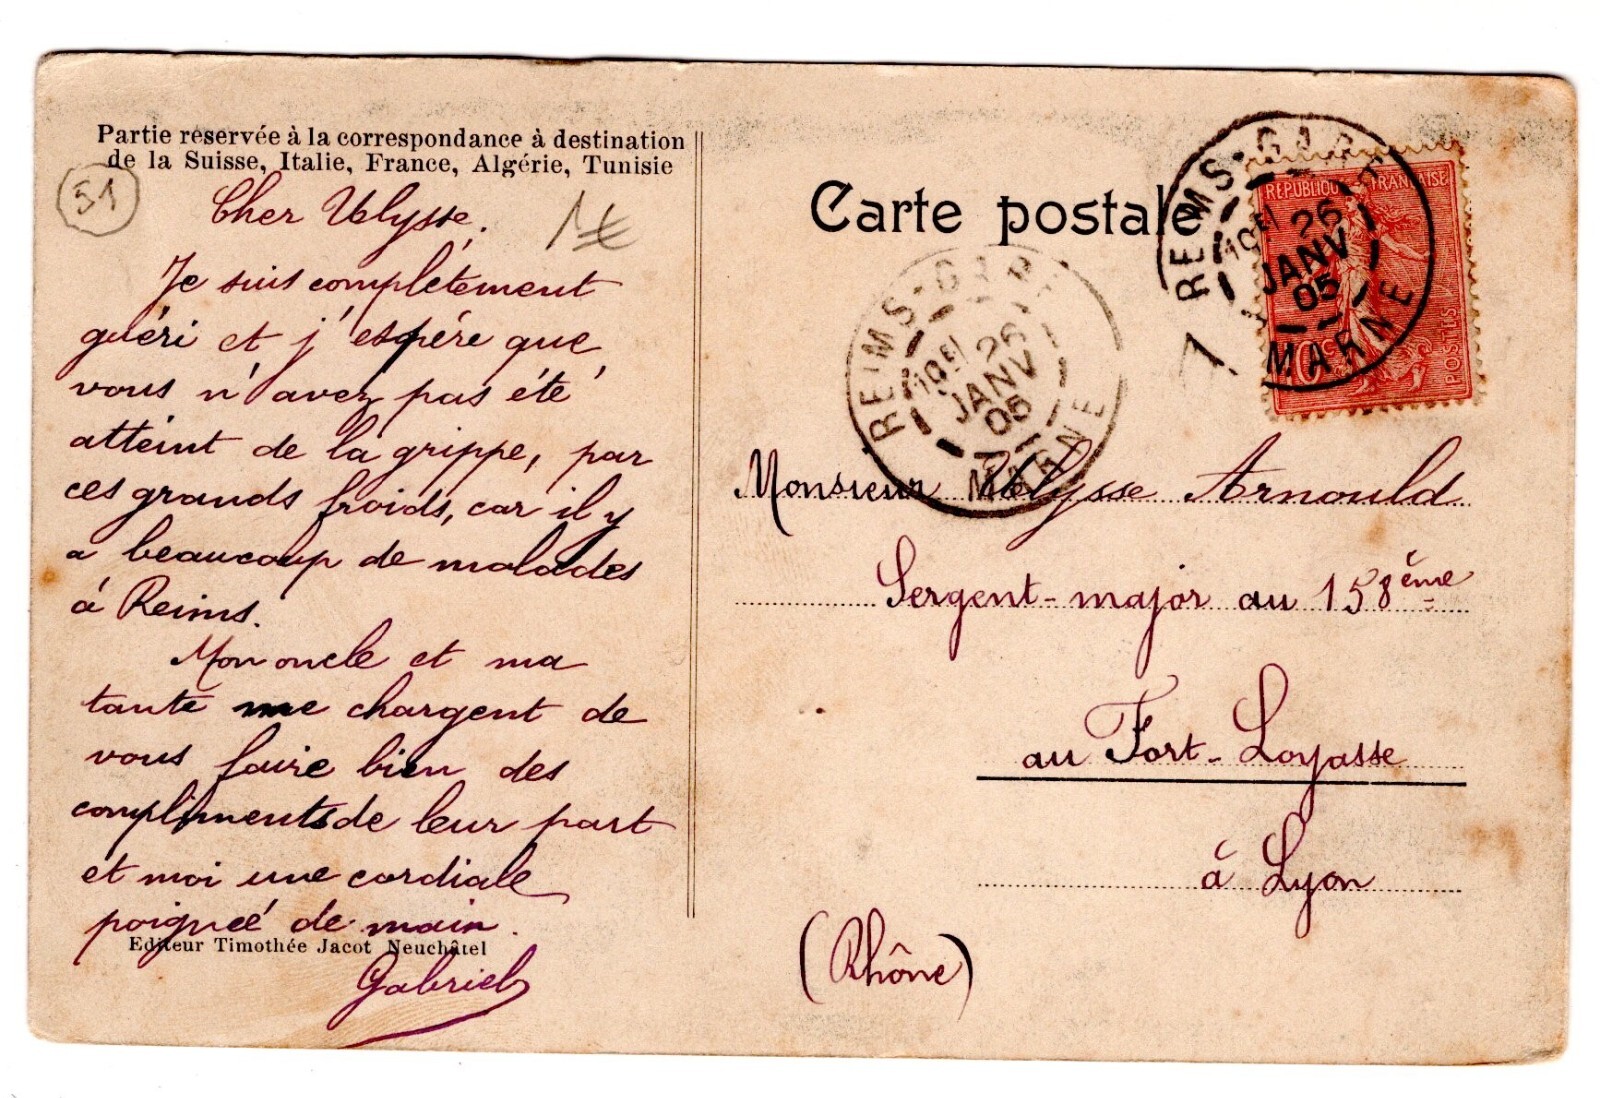 Partie reservée à la correspondance à destination
de la Suisse, Italie, France, Algérie, Tunisie
51
Cher Ulysse.
Je suis complètement
guéri et j'espére que
vous n'avez pas été
atteint de la grippe, par
ces grands froids, car il y
a beaucoup de malades
à Reims.
Mon oncle et ma
tante me chargent de
vous faire bien des
compliments de leur part
et moi une cordiale
poigneé de main.
Editeur Timothée Jacot Neuchâtel
Gabriel
Carte postale
REIMS-GARE
26
JANV
05
MARNE
REIMS-GARE
26
JANV
05
MARNE
REPUBLIQUE FRANÇAISE
10c
POSTES
Monsieur Ulysse Arnould
Sergent-major au 158ème
au Fort-Loyasse
à Lyon
(Rhône)